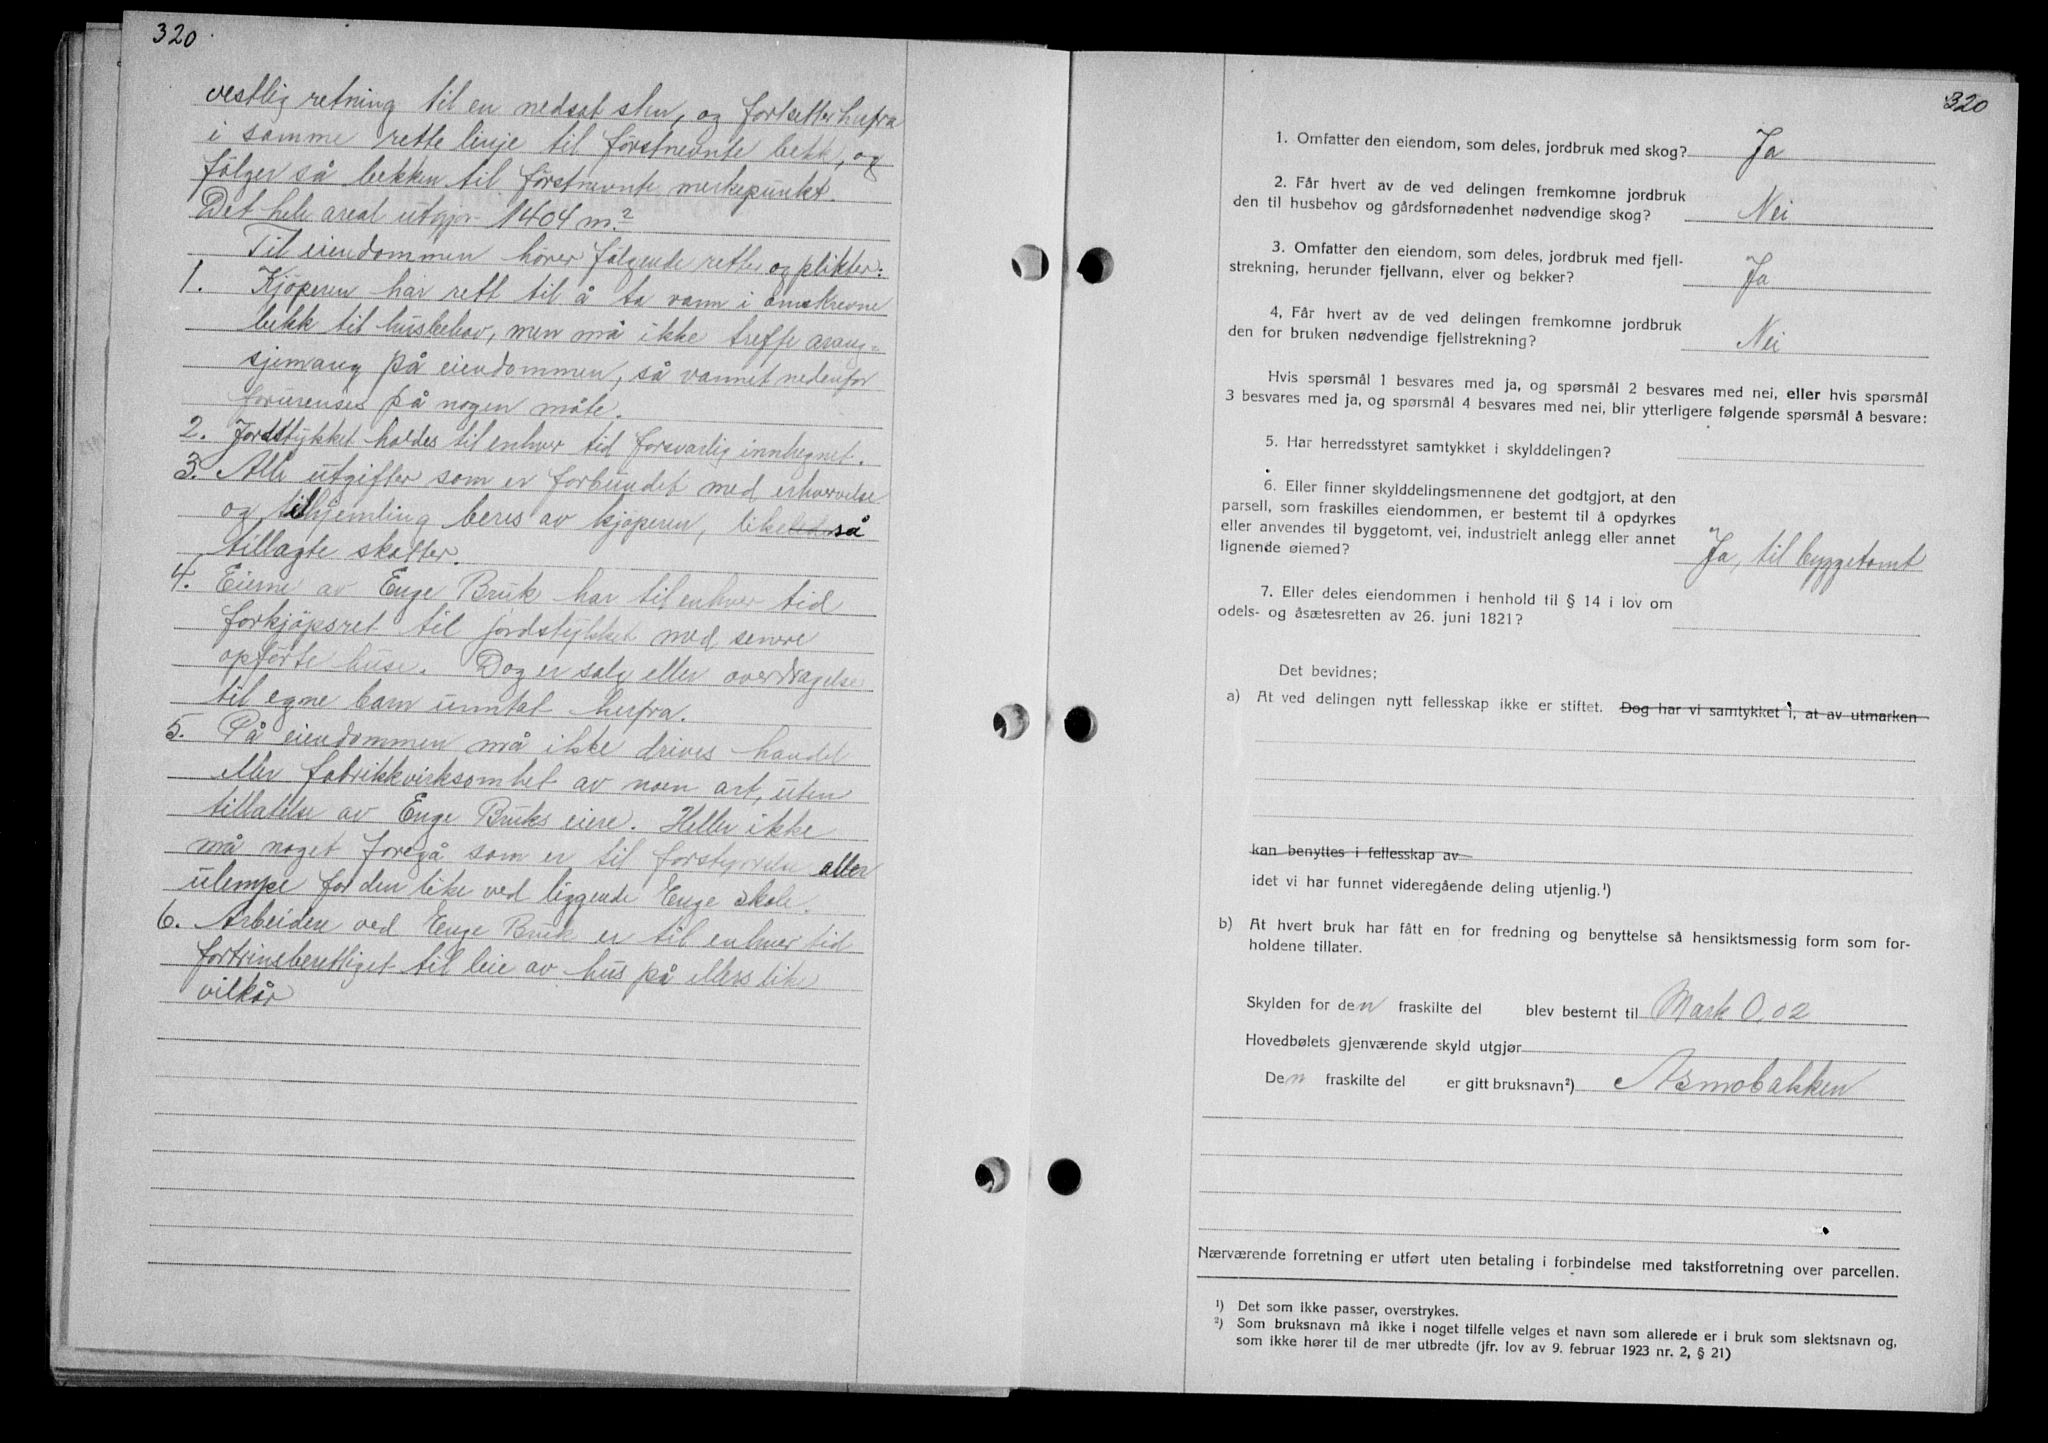 320
vestlig retning til en nedsat sten, og fortsetter herfra
i samme rette linje til førstnevnte bekk, og
følger så bekken til førstnevnte merkepunkt.
Det hele areal utgjør 1404 m.²
Til eiendommen hører følgende retter og plikter:
1. Kjøperen har rett til å ta vann i omskrevne
bekk til husbehov, men må ikke treffe arang-
sjemang på eiendommen, så vannet nedenfor
forurenses på nogen måte.
2. Jordstykket holdes til enhver tid forsvarlig innhegnet.
3. Alle utgifter som er forbundet med erhvervelse
og tilhjemling beres av kjøperen, likeså
tillagte skatter.
4. Eierne av Enge Bruk har til enhver tid
forkjøpsret til jordstykket med senere
opførte huse. Dog er salg eller overdragelse
til egne barn unntat herfra.
5. På eiendommen må ikke drives handel
eller fabrikkvirksomhet av noen art, uten
tillatelse av Enge Bruks eiere. Heller ikke
må noget foregå som er til forstyrrelse eller
ulempe for den like ved liggende Enge skole.
6. Arbeidere ved Enge Bruk er til enhver tid
fortrinsberettiget til leie av hus på ellers like
vilkår
320
1. Omfatter den eiendom, som deles, jordbruk med skog? Ja
2. Får hvert av de ved delingen fremkomne jordbruk
den til husbehov og gårdsfornødenhet nødvendige skog? Nei
3. Omfatter den eiendom, som deles, jordbruk med fjell-
strekning, herunder fjellvann, elver og bekker? Ja
4, Får hvert av de ved delingen fremkomne jordbruk
den for bruken nødvendige fjellstrekning? Nei
Hvis spørsmål 1 besvares med ja, og spørsmål 2 besvares med nei, eller hvis spørsmål
3 besvares med ja, og spørsmål 4 besvares med nei, blir ytterligere følgende spørsmål å besvare:
5. Har herredsstyret samtykket i skylddelingen?
6. Eller finner skylddelingsmennene det godtgjort, at den
parsell, som fraskilles eiendommen, er bestemt til å opdyrkes
eller anvendes til byggetomt, vei, industrielt anlegg eller annet
lignende øiemed? Ja, til byggetomt
7. Eller deles eiendommen i henhold til § 14 i lov om
odels- og åsætesretten av 26. juni 1821?
Det bevidnes;
a) At ved delingen nytt fellesskap ikke er stiftet. Dog har vi samtykket i, at av utmarken
kan benyttes i fellesskap av
idet vi har funnet videregående deling utjenlig.¹)
b) At hvert bruk har fått en for fredning og benyttelse så hensiktsmessig form som for-
holdene tillater.
Skylden for den fraskilte del blev bestemt til Mark 0,02
Hovedbølets gjenværende skyld utgjør
Den fraskilte del er gitt bruksnavn²) Asmobakken
Nærværende forretning er utført uten betaling i forbindelse med takstforretning over parcellen.
¹) Det som ikke passer, overstrykes.
²) Som bruksnavn må ikke i noget tilfelle velges et navn som allerede er i bruk som slektsnavn og,
som ikke hører til de mer utbredte (jfr. lov av 9. februar 1923 nr. 2, § 21)